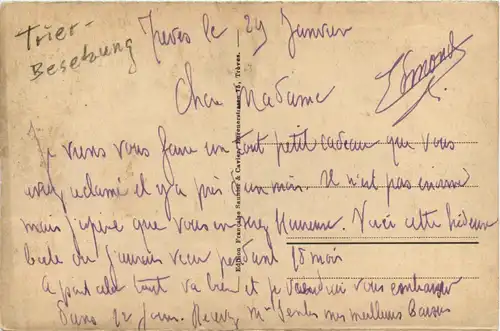 Trier-
Besetzung
Trèves le 29 Janvier
Edmond
Chère Madame
Je viens vous faire un tout petit cadeau que vous
avez réclamé il y a près d'un mois. Il n'est pas énorme
mais j'espère que vous en serez heureuse. Voici cette hideuse
boîte où j'aurais vécu pendant 18 mois
A part cela tout va bien et je viendrai vous embrasser
dans 12 jours. Recevez, Mme, mes meilleurs baisers
Edition Française Trèves.